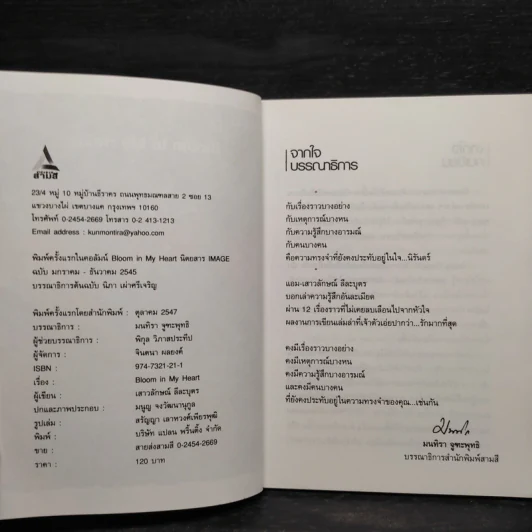 สามสี
23/4 หมู่ 10 หมู่บ้านธีราคร ถนนพุทธมณฑลสาย 2 ซอย 13
แขวงบางไผ่ เขตบางแค กรุงเทพฯ 10160
โทรศัพท์ 0-2454-2669 โทรสาร 0-2 413-1213
Email address : kunmontira@yahoo.com
พิมพ์ครั้งแรกในคอลัมน์ Bloom in My Heart นิตยสาร IMAGE
ฉบับ มกราคม - ธันวาคม 2545
บรรณาธิการต้นฉบับ นิภา เผ่าศรีเจริญ
พิมพ์ครั้งแรกโดยสำนักพิมพ์ : ตุลาคม 2547
บรรณาธิการ : มนทิรา จูฑะพุทธิ
ผู้ช่วยบรรณาธิการ : พิกุล วิภาสประทีป
ผู้จัดการ : จินตนา ผลยงค์
ISBN : 974-7321-21-1
เรื่อง : Bloom in My Heart
ผู้เขียน : เสาวลักษณ์ ลีละบุตร
ปกและภาพประกอบ : มนูญ จงวัฒนานุกูล
รูปเล่ม : สรัญญา เลาหวงศ์เพียรพุฒิ
พิมพ์ : บริษัท แปลน พริ้นติ้ง จำกัด
ขาย : สายส่งสามสี 0-2454-2669
ราคา : 120 บาท
จากใจ
บรรณาธิการ
กับเรื่องราวบางอย่าง
กับเหตุการณ์บางหน
กับความรู้สึกบางอารมณ์
กับคนบางคน
คือความทรงจำที่ยังคงประทับอยู่ในใจ...นิรันดร์
แอม-เสาวลักษณ์ ลีละบุตร
บอกเล่าความรู้สึกอันละเมียด
ผ่าน 12 เรื่องราวที่ไม่เคยลบเลือนไปจากหัวใจ
ผลงานการเขียนเล่มล่าที่เจ้าตัวเอ่ยปากว่า...รักมากที่สุด
คงมีเรื่องราวบางอย่าง
คงมีเหตุการณ์บางหน
คงมีความรู้สึกบางอารมณ์
และคงมีคนบางคน
ที่ยังคงประทับอยู่ในความทรงจำของคุณ...เช่นกัน
มนทิรา จูฑะพุทธิ
บรรณาธิการสำนักพิมพ์สามสี